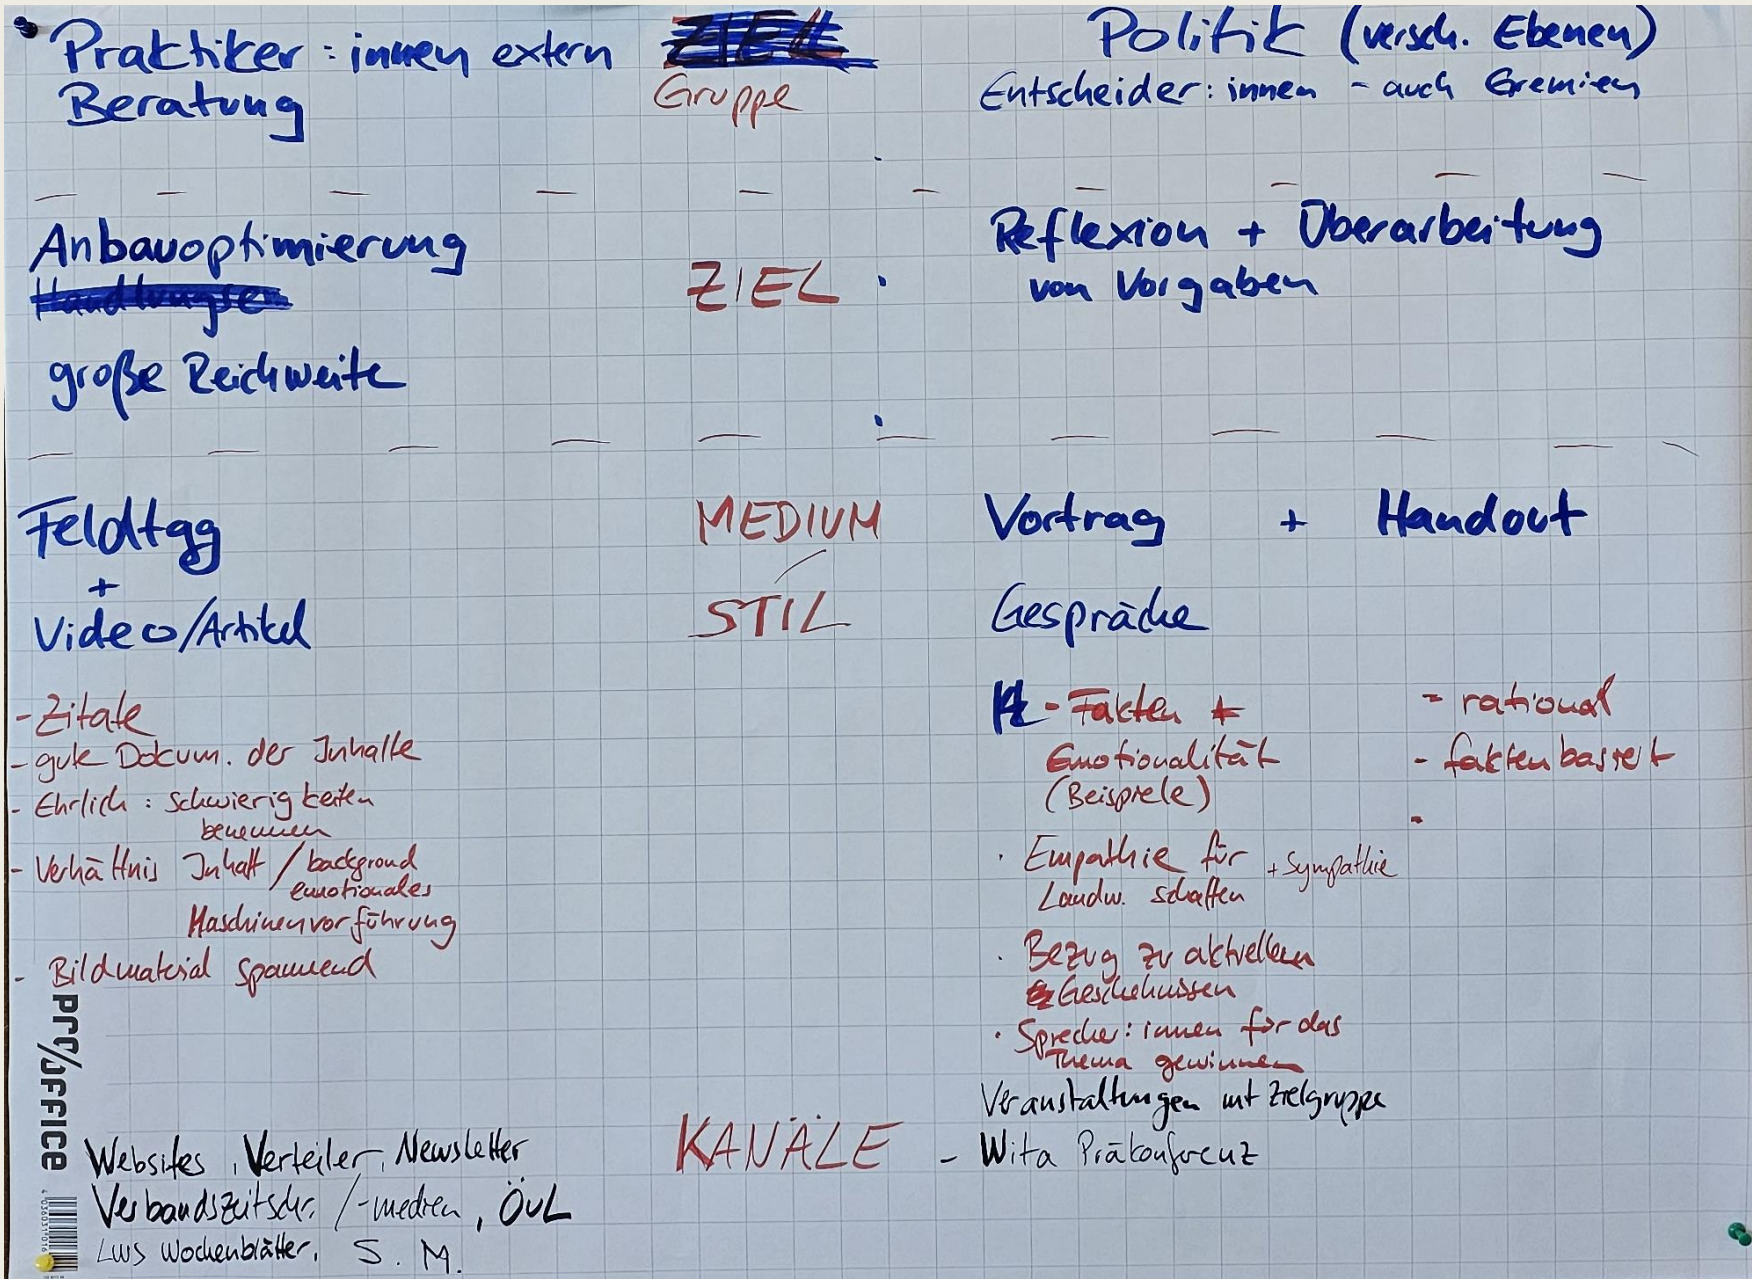 Praktiker:innen extern
Beratung
Gruppe
Politik (versch. Ebenen)
Entscheider:innen - auch Gremien
Anbauoptimierung
große Reichweite
ZIEL
Reflexion + Überarbeitung
von Vorgaben
Feldtag
+
Video/Artikel
MEDIUM
/
STIL
Vortrag + Handout
Gespräche
- Zitate
- gute Dokum. der Inhalte
- Ehrlich: Schwierigkeiten
benennen
- Verhältnis Inhalt / backgroud
emotionales
Maschinenvorführung
- Bildmaterial spannend
- Fakten +
Emotionalität
(Beispiele)
· Empathie für + Sympathie
Landw. schaffen
· Bezug zu aktuellen
Geschehnissen
· Sprecher:innen für das
Thema gewinnen
- rational
- faktenbasiert
-
PRO/OFFICE
Websites, Verteiler, Newsletter
Verbandszeitschr. /-medien, ÖuL
LWS Wochenblätter, S. M.
KANÄLE
Veranstaltungen mit Zielgruppe
- Wita Präkonferenz